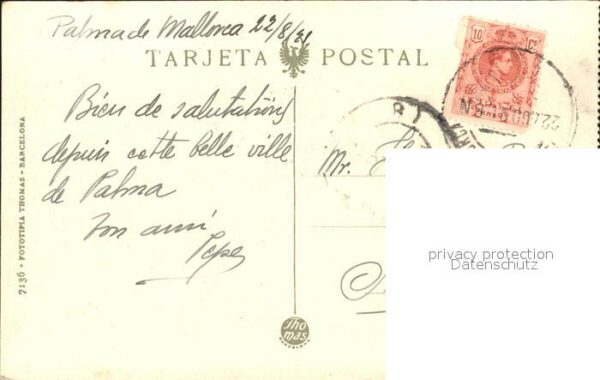 Palma de Mallorca 22/8/21
TARJETA POSTAL
Bien de salutations
depuis cette belle ville
de Palma
ton ami
Pepe
Mr.
7136 - FOTOTIPIA THOMAS - BARCELONA
Thomas
BARCELONA
10
privacy protection
Datenschutz